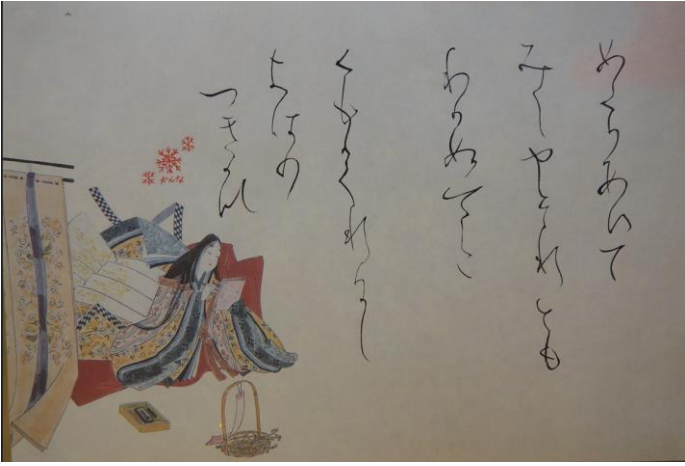 めくりあひて
みしやそれとも
わかぬまに
くもかくれにし
よはの
つきかな
かんな